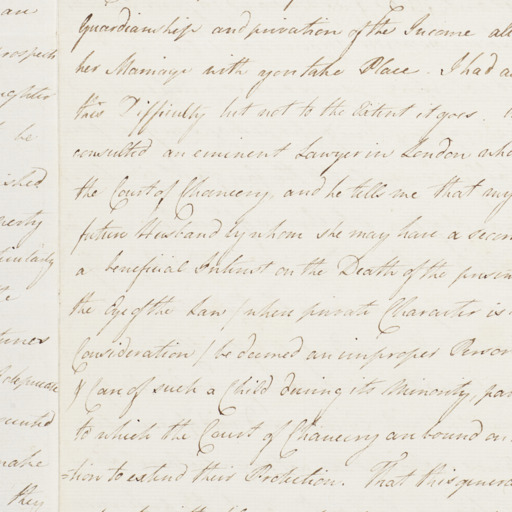 an
prospects
ughter
be
ished
perty
ticularly
tunes
counted
make
they
Guardianship and privation of the Income all
her Marriage with you take Place. I had a
this Difficulty but not to the Extent it goes.
consulted an eminent Lawyer in London who
the Court of Chancery, and he tells me that my
future Husband by whom she may have a secon
a beneficial Interest on the Death of the presen
the Eye of the Law / where private Character is
Consideration / be deemed an improper Person
& Care of such a Child during its Minority, par
to which the Court of Chancery are bound on
=tion to extend their Protection. That this genera